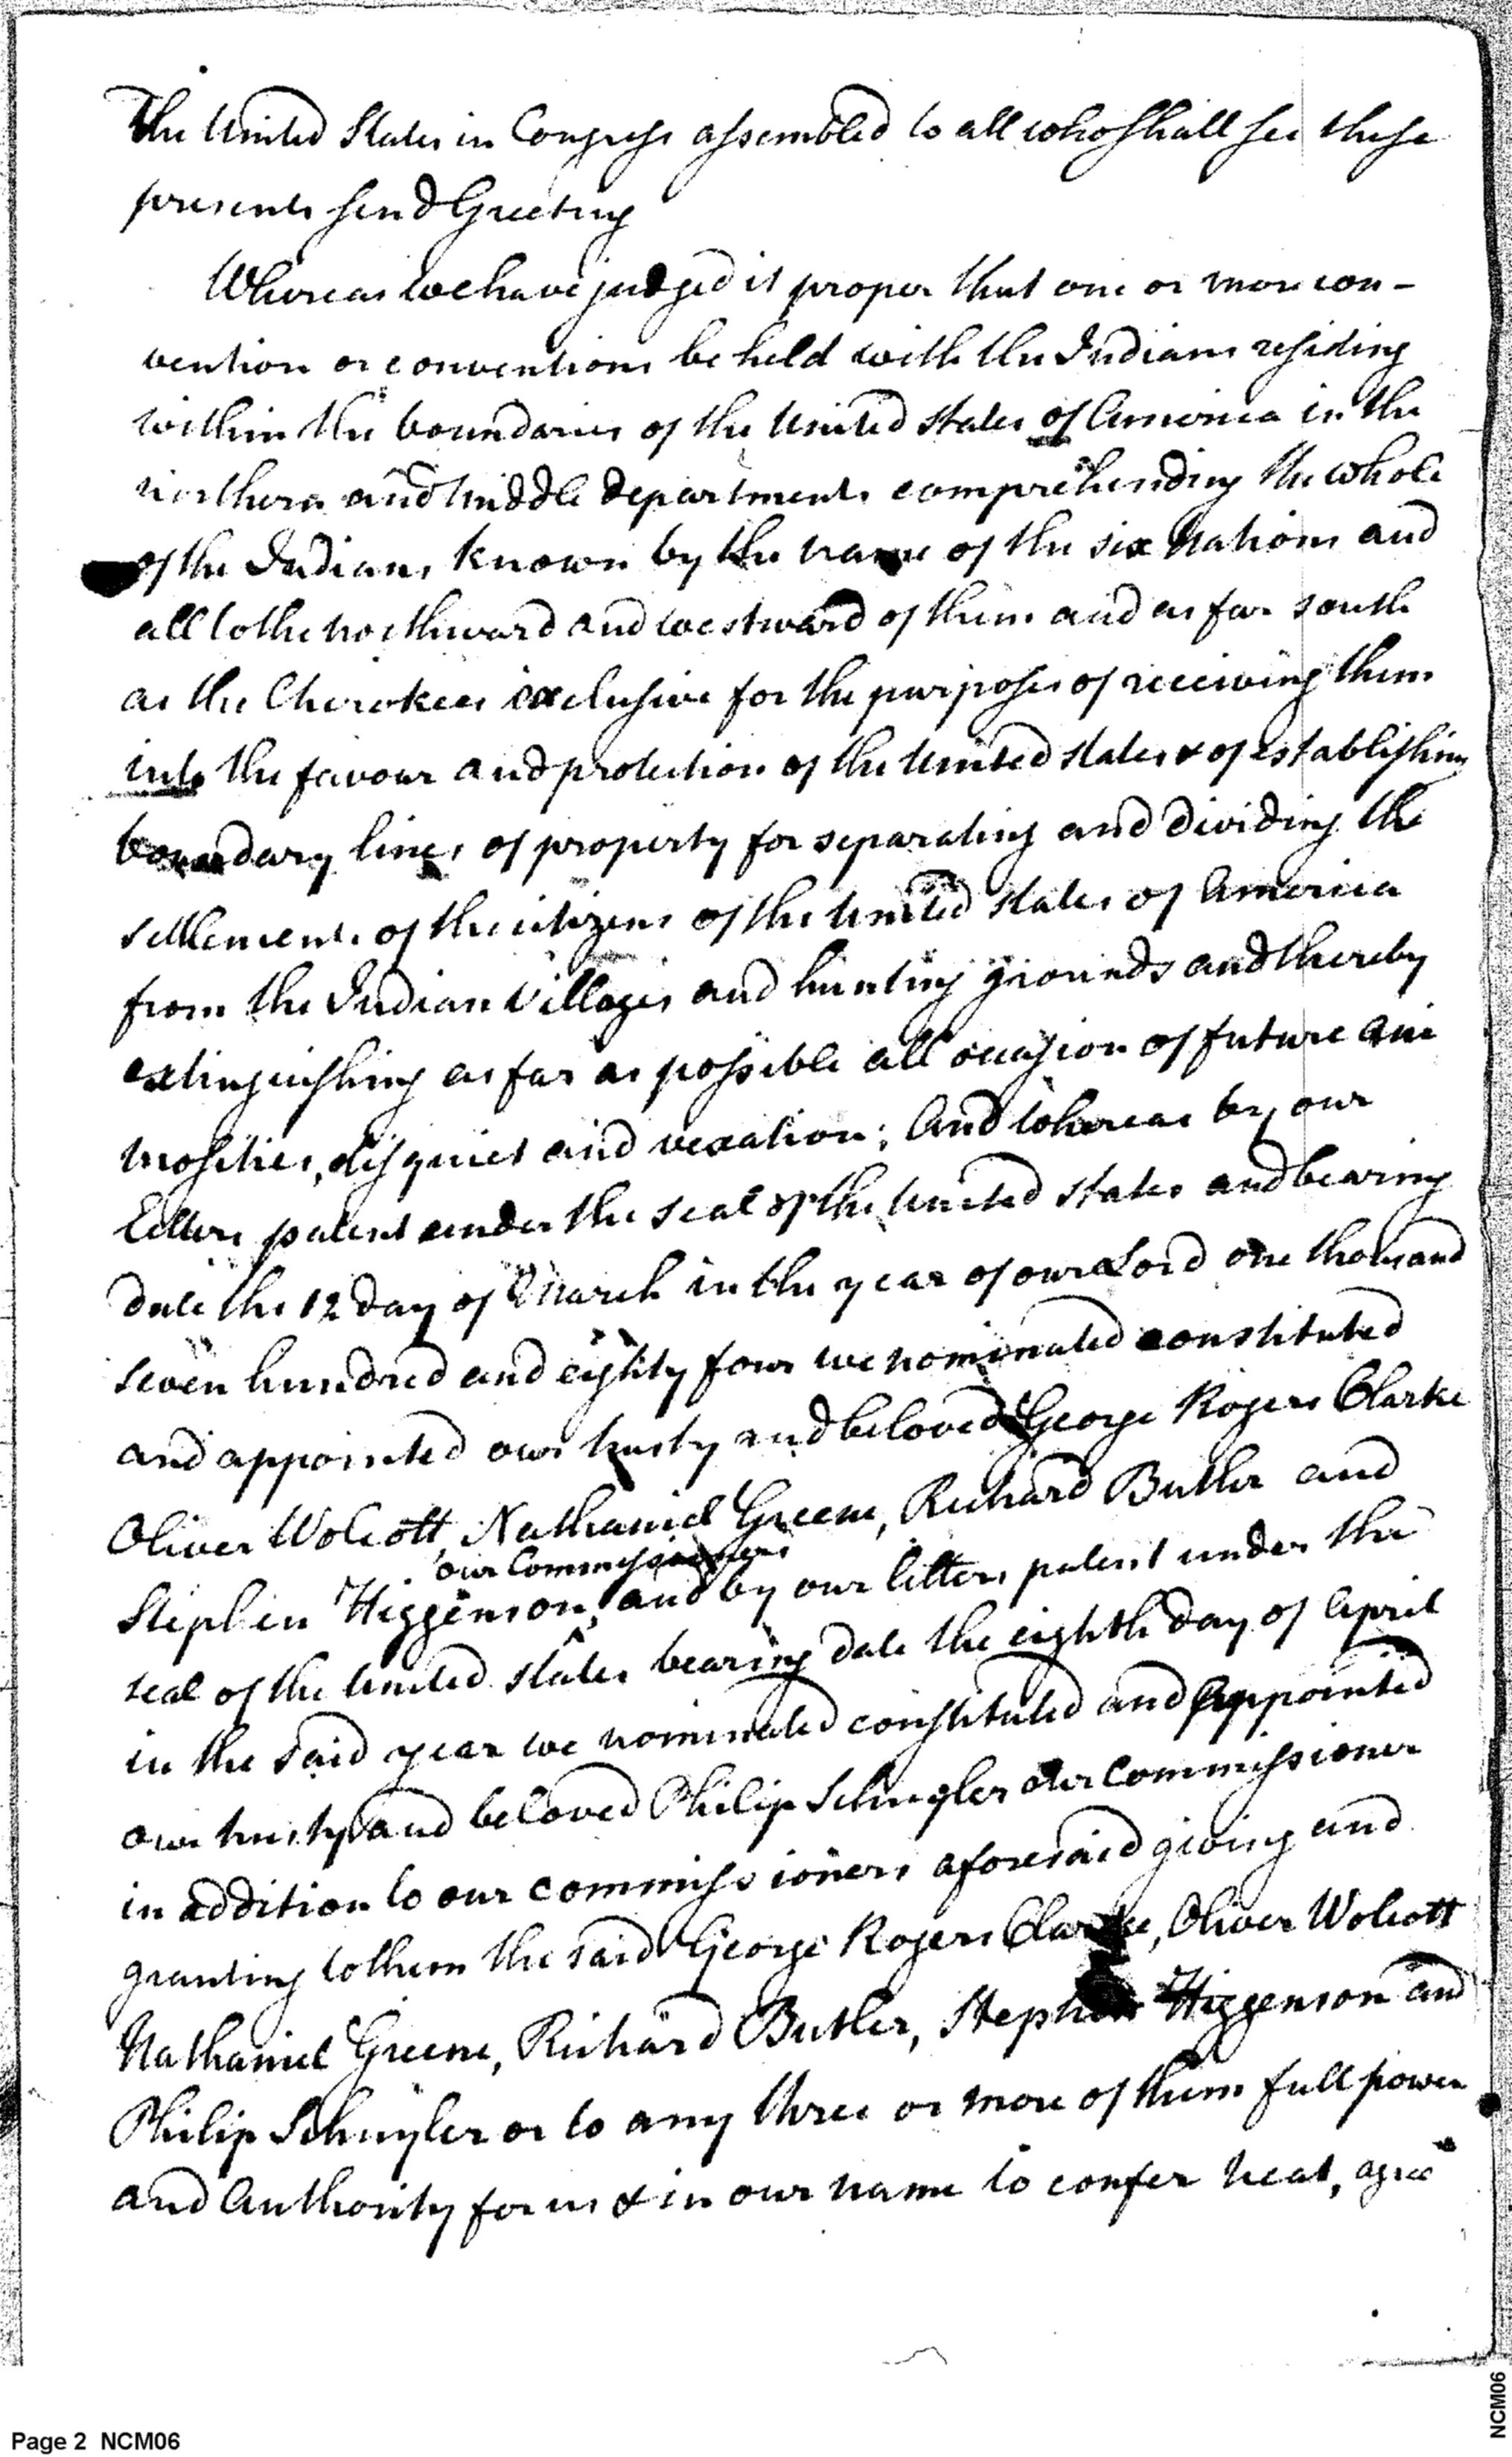 The United States in Congress assembled to all who shall see these
presents send Greeting
Whereas we have judged it proper that one or more con-
vention or conventions be held with the Indians residing
within the boundaries of the United States of America in the
northern and middle departments comprehending the whole
of the Indians known by the name of the six Nations and
all to the northward and westward of them and as far south
as the Cherokees exclusive for the purposes of receiving them
into the favour and protection of the United States & of establishing
boundary lines of property for separating and dividing the
settlements of the citizens of the United States of America
from the Indian Villages and hunting grounds and thereby
extinguishing as far as possible all occasion of future ani
mosities, disquiet and vexation; And whereas by our
Letters patent under the seal of the United States and bearing
date the 12 day of March in the year of our Lord one thousand
seven hundred and eighty four we nominated constituted
and appointed our trusty and beloved George Rogers Clarke
Oliver Wolcott, Nathaniel Greene, Richard Butler and
our Commissioners
Stephen Higgenson, and by our letters patent under the
seal of the United States bearing date the eighth day of April
in the said year we nominated constituted and appointed
our trusty and beloved Philip Schuyler our Commissioner
in addition to our commissioners aforesaid giving and
granting to them the said George Rogers Clarke, Oliver Wolcott
Nathaniel Greene, Richard Butler, Stephen Higgenson and
Philip Schuyler or to any three or more of them full power
and Authority for us & in our name to confer treat, agree
Page 2 NCM06
NCM06